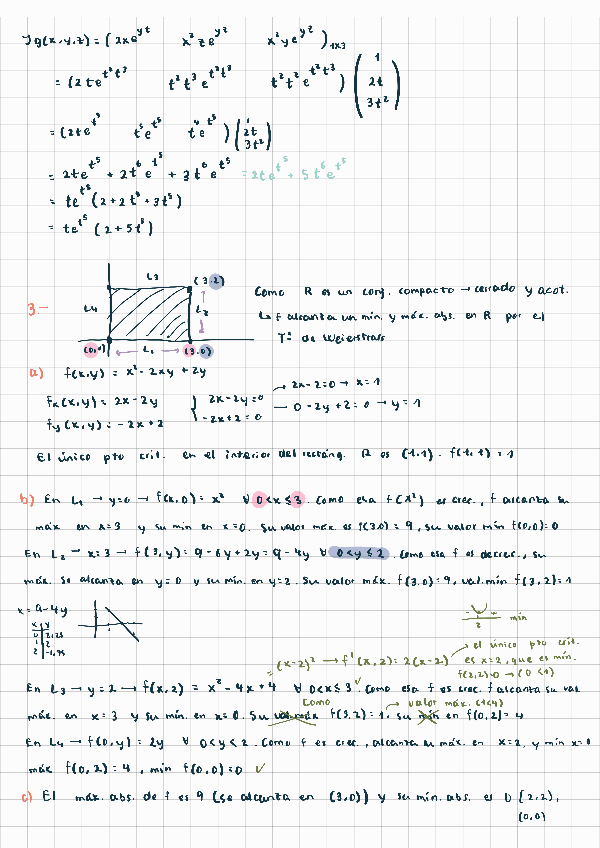 Jg(x,y,z) = ( 2xe^{yz}   x²ze^{yz}   x²ye^{yz} )_{1x3}
= (2te^{t²t³}   t²t³e^{t²t³}   t²t²e^{t²t³}) ( 1
2t
3t² )
= (2te^{t⁵}   t⁵e^{t⁵}   t⁴e^{t⁵}) ( 1
2t
3t² )
= 2te^{t⁵} + 2t⁶e^{t⁵} + 3t⁶e^{t⁵} = 2te^{t⁵} + 5t⁶e^{t⁵}
= te^{t⁵} (2+2t⁵+3t⁵)
= te^{t⁵} (2+5t⁵)
3.-
L3
(3,2)
L4
L2
(0,0)
L1
(3,0)
Como R es un conj. compacto → cerrado y acot.
↳ f alcanza un mín. y máx. abs. en R por el
Tª de Weierstrass
a) f(x,y) = x² - 2xy + 2y
fx(x,y) = 2x - 2y
fy(x,y) = -2x + 2
{ 2x - 2y = 0
-2x + 2 = 0
→ 2x - 2 = 0 → x = 1
→ 0 - 2y + 2 = 0 → y = 1
El único pto crít. en el interior del rectáng. R es (1,1). f(1,1) = 1
b) En L1 → y=0 → f(x,0) = x² ∀ 0<x≤3. Como esa f(x²) es crec., f alcanza su
máx en x=3 y su mín en x=0. Su valor máx. es f(3,0) = 9, su valor mín f(0,0)=0
En L2 → x=3 → f(3,y) = 9-6y+2y = 9-4y ∀ 0<y≤2. Como esa f es decrec., su
máx. se alcanza en y=0 y su mín. en y=2. Su valor máx. f(3,0)=9, val.mín f(3,2)=1
x = 9-4y
x y
0 2,25
1 2
2 -1,75
2
mín
= (x-2)² → f'(x,2) = 2(x-2)
→ el único pto crít.
es x=2, que es mín.
f(2,2)=0 → (0<1)
En L3 → y=2 → f(x,2) = x² - 4x + 4 ∀ 0<x≤3. Como esa f es crec. f alcanza su val
Como
→ valor máx. (1<4)
máx. en x=3 y su mín. en x=0. Su val máx f(3,2)=1, su mín en f(0,2)=4
En L4 → f(0,y) = 2y ∀ 0<y<2. Como f es crec., alcanza su máx. en x=2, y mín x=0
máx f(0,2) = 4, mín f(0,0) = 0 ✓
c) El máx. abs. de f es 9 (se alcanza en (3,0)) y su mín. abs. es 0 {(2,2),
(0,0)